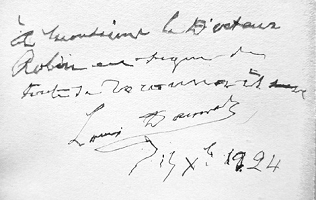 à Monsieur le Docteur
Robin en signe de
toute la reconnaissance
Louis
15 Xbre 1924